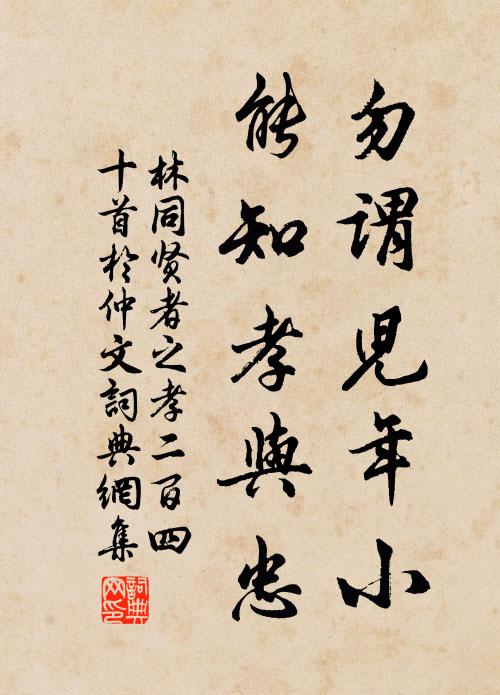 勿謂児年小
能知孝與忠
林同贤者之孝二百四
十首於仲文詞典網集
詞典
网印